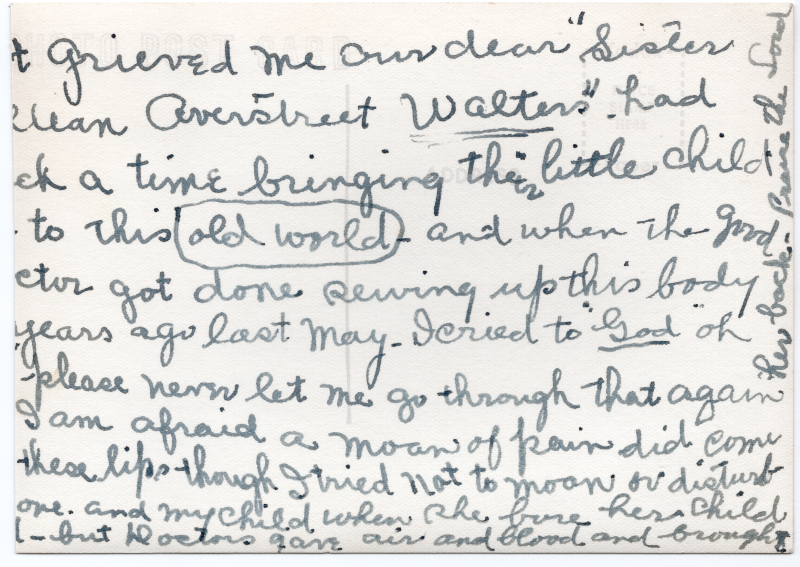 t Grieved me our dear "Sister
Overstreet Walters" had
a time bringing their little child
to this old world - and when the good
ctor got done sewing up this body
years ago last May - I cried to "God" oh
please never let me go through that again
I am afraid a moan of pain did come
these lips though I tried not to moan or disturb
one. and my child when she bore her child
- but Doctors gave air and blood and brought
her back. Praise the Lord